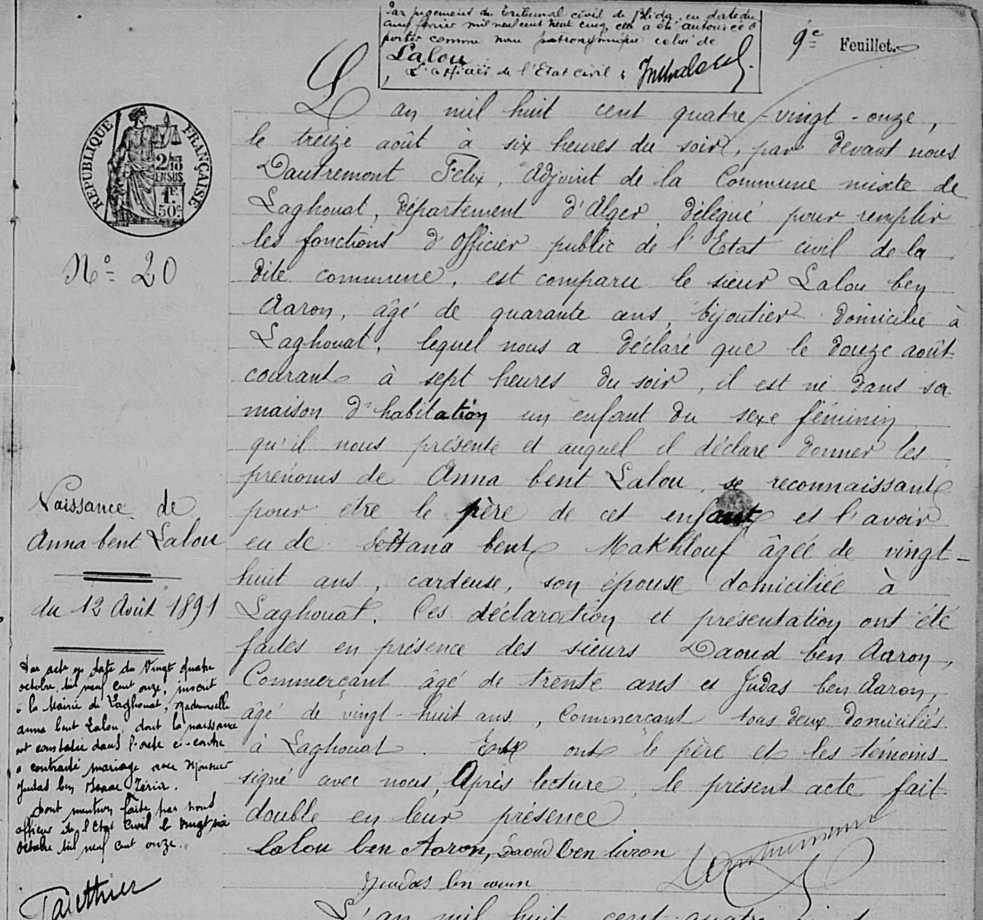 Par jugement du Tribunal civil de Blida, en date du
cinq février mil neuf cent cinq, elle a été autorisée à
porter comme nom patronymique celui de
Lalou
L'officier de l'Etat civil :
9e Feuillet.
L'an mil huit cent quatre-vingt-onze,
le treize août à six heures du soir, par devant nous
Dautremont Felix, adjoint de la Commune mixte de
Laghouat, département d'Alger délégué pour remplir
les fonctions d'officier public de l'Etat civil de la
dite commune, est comparu le sieur Lalou ben
Aaron, âgé de quarante ans, bijoutier domicilié à
Laghouat, lequel nous a déclaré que le douze août
courant à sept heures du soir, il est né dans sa
maison d'habitation un enfant du sexe féminin
qu'il nous présente et auquel il déclare donner les
prénoms de Anna bent Lalou, se reconnaissant
pour être le père de cet enfant et l'avoir
eu de Soltana bent Makhlouf âgée de vingt-
huit ans, cardeuse, son épouse domiciliée à
Laghouat. Ces déclaration et présentation ont été
faites en présence des sieurs Daoud ben Aaron,
Commerçant âgé de trente ans et Judas ben Aaron,
âgé de vingt-huit ans, commerçant tous deux domiciliés
à Laghouat. Et ont le père et les témoins
signé avec nous, Après lecture, le présent acte fait
double en leur présence
Lalou ben Aaron, Daoud ben Aaron
Judas ben
L'an mil huit cent quatre
REPUBLIQUE FRANÇAISE
2/10 EN SUS
1F 50c
No 20
Naissance de
Anna bent Lalou
du 12 Août 1891
Par acte en date du Vingt quatre
octobre mil neuf cent onze, inscrit
à la Mairie de Laghouat, Mademoiselle
Anna bent Lalou, dont la naissance
est constatée dans l'acte ci-contre
a contracté mariage avec Monsieur
Judas ben Isaac Zérir.
Dont mention faite par nous
officier de l'Etat Civil le vingt six
octobre mil neuf cent onze.